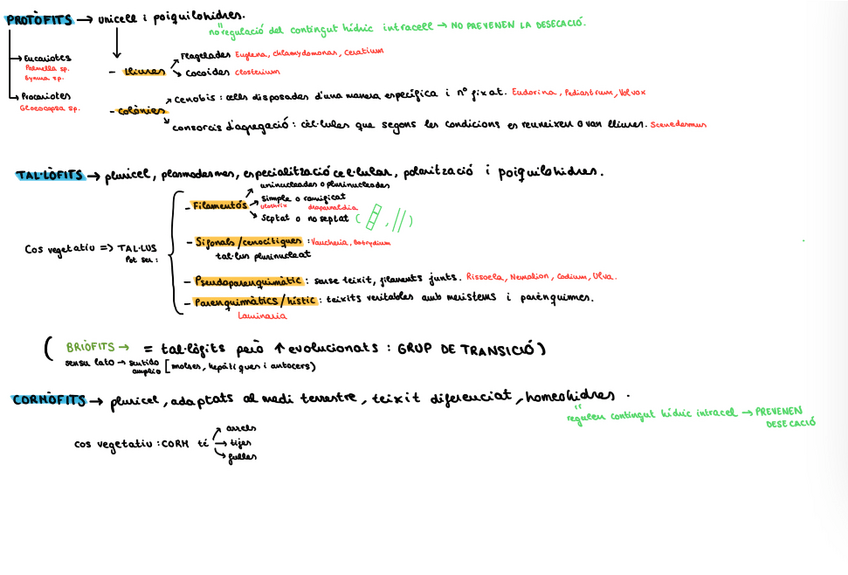 PROTÒFITS → unicell i poiquilohidres.
"no regulació del contingut hídric intracell → NO PREVENEN LA DESECACIÓ.
→ Eucariotes
Palmella sp.
→ Procariotes
Gloeocapsa sp.
- lliures
flagelades Euglena, chlamydomonas, Ceratium
cocoides closterium
- colònies
cenobis : cèlls disposades d'una manera específica i nº fixat. Eudorina, Pediastrum, Volvox
consorcis d'agregació : cèl·lules que segons les condicions es reuneixen o van lliures. Scenedesmus
TAL·LÒFITS → pluricel, plasmodesmes, especialització cel·lular, polarització i poiquilohidres.
Cos vegetatiu => TAL·LUS
Pot ser :
- Filamentós
uninucleades o plurinucleades
simple o ramificat
Ulothrix draparnaldia
septat o no septat ( , )
- Sifonals/cenocítiques : Vaucheria, Botrydium
tal·lus plurinucleat
- Pseudoparenquimàtic : sense teixit, filaments junts. Rissoella, Nemalion, Codium, Ulva.
- Parenquimàtics/hístic : teixits veritables amb meristems i parènquimes.
Laminaria
( BRIÒFITS → = tal·lòfits però ↑ evolucionats : GRUP DE TRANSICIÓ )
sensu lato → sentido amplio [molses, hepàtiques i antocers)
CORMÒFITS → pluricel, adaptats al medi terrestre, teixit diferenciat, homeohidres .
"regulen contingut hídric intracel → PREVENEN
DESECACIÓ
cos vegetatiu : CORM té
arrels
→ tijes
fulles